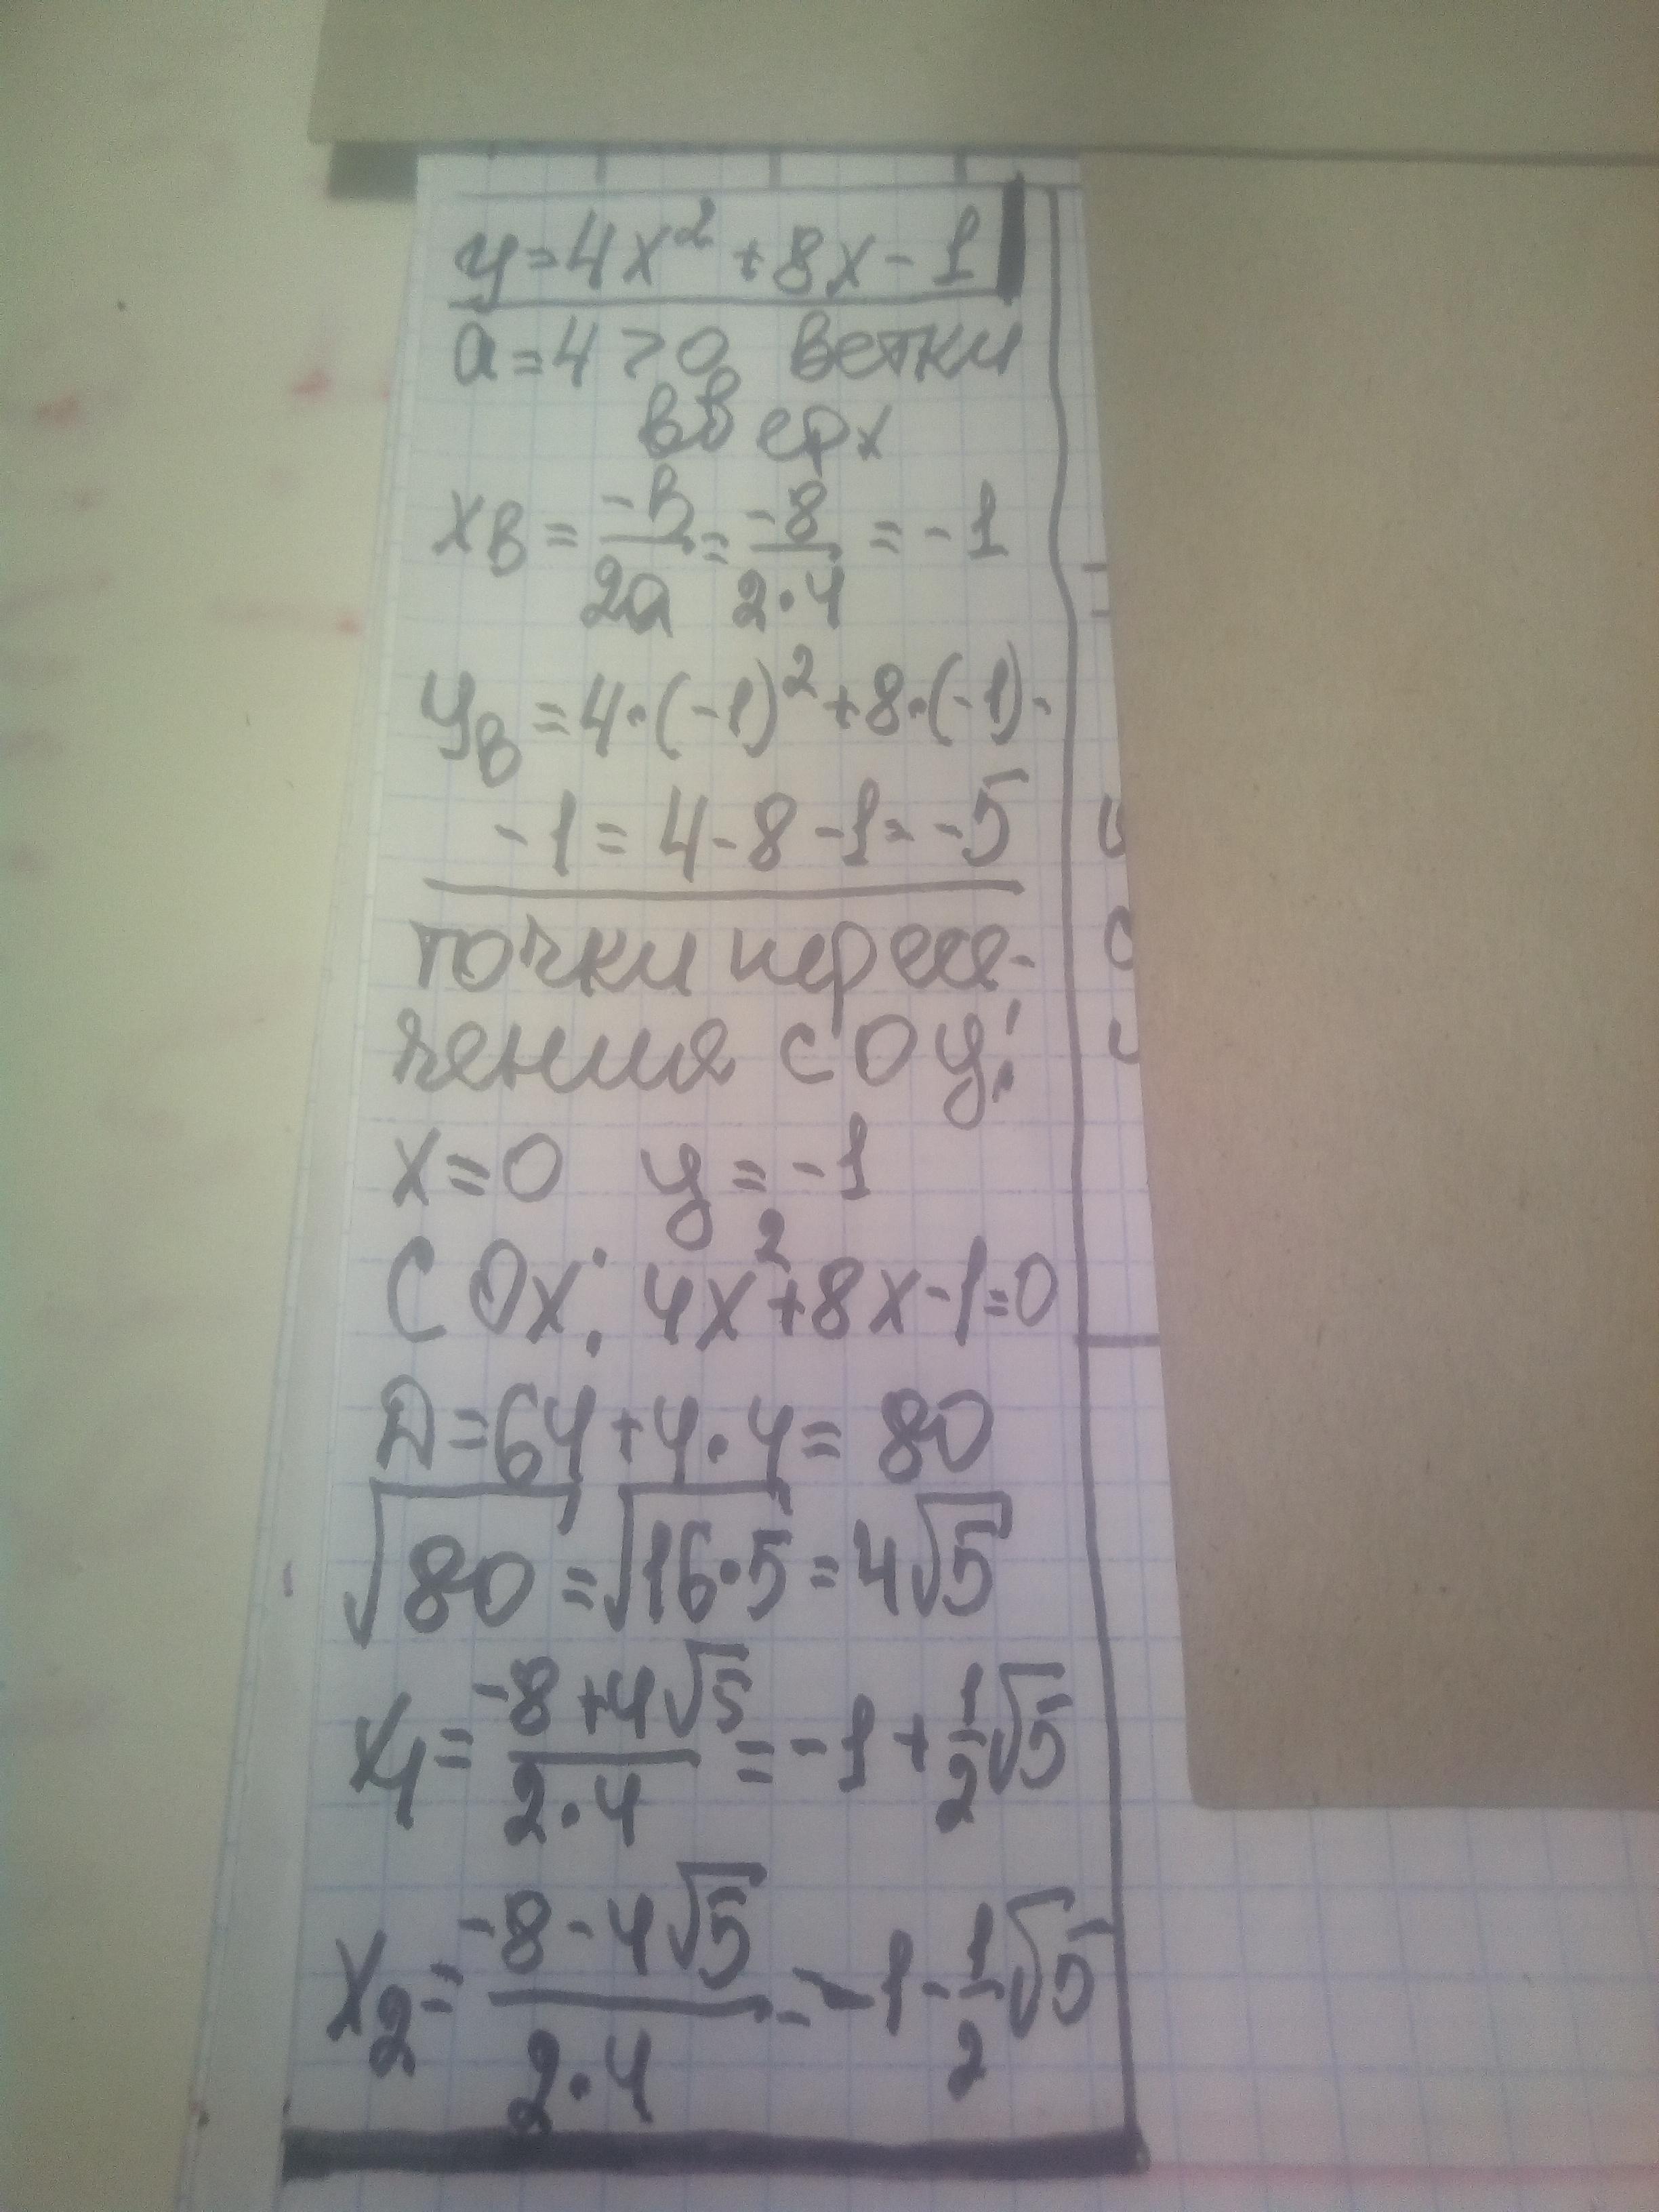 y=4x²+8x-1
a=4>0 ветки
вверх
xв = -в/2a = -8/2·4 = -1
yв = 4·(-1)²+8·(-1)-
-1=4-8-1=-5
точки пересе-
чения с Oy:
x=0 y=-1
с Ox: 4x²+8x-1=0
D=64+4·4=80
√80=√16·5=4√5
x₁= -8+4√5/2·4 = -1+1/2√5
x₂= -8-4√5/2·4 = -1-1/2√5